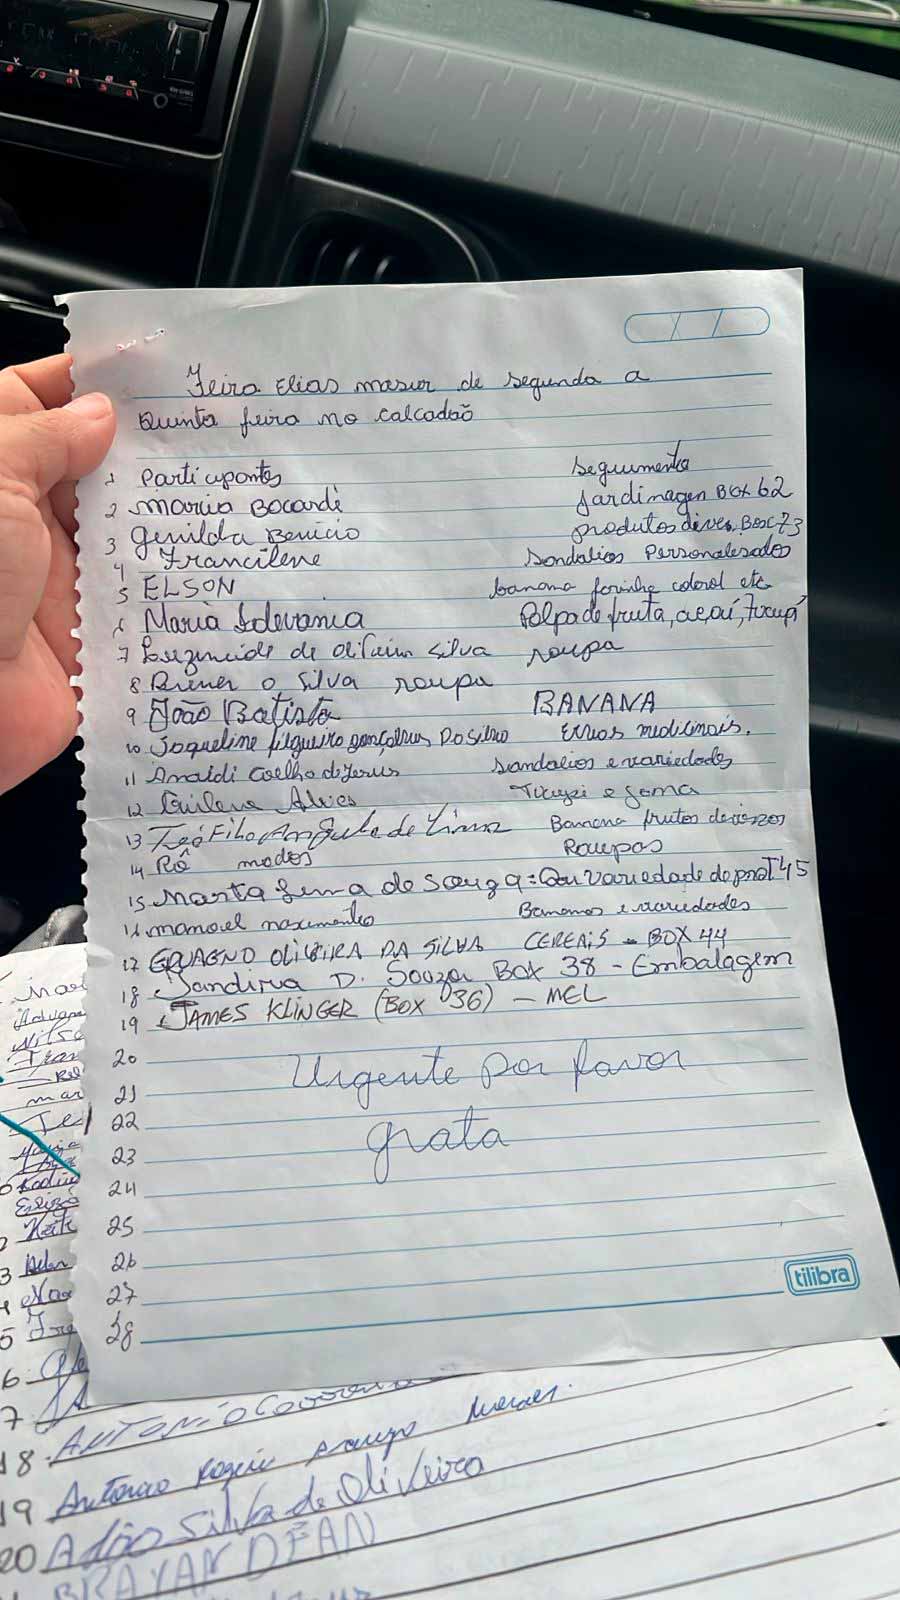 Feira Elias mansur de segunda a
Quinta feira no calcadão
1 Participantes seguimento
2 maria Bocardi Jardinagen BOX 62
3 genilda Benicio produtos divers. Box 73
4 Francilene Sandalias Personalesadas
5 ELSON banana farinha coloral etc.
6 Maria Idevania Polpa de fruta, açaí, Tucupí
7 de Oliveira Silva roupa
8 Brener O Silva roupa
9 João Batista BANANA
10 Joqueline filgueira gonçalves Da silva Ervas medicinais.
11 Anaidi Coelho d Jesus Sandalias e variedades
12 Alves Tucupi e goma
13 de Lima Banana frutos deversos
14 Rô modas Roupas
15 Marta Lima de Souza: variedade de prot 45
16 manoel nascimento Bananas e variedades
17 OLIVEIRA DA SILVA CEREAIS - BOX 44
18 Jandira D. Souza BOX 38 - Embalagem
19 JAMES KLINGER (BOX 36) - MEL
20
Urgente por favor
21
22
grata
23
24
25
26
27
28
tilibra
18 ANTONIO
19 Antonio
20 Adão Silva de Oliveira
BRAYAN DEAN